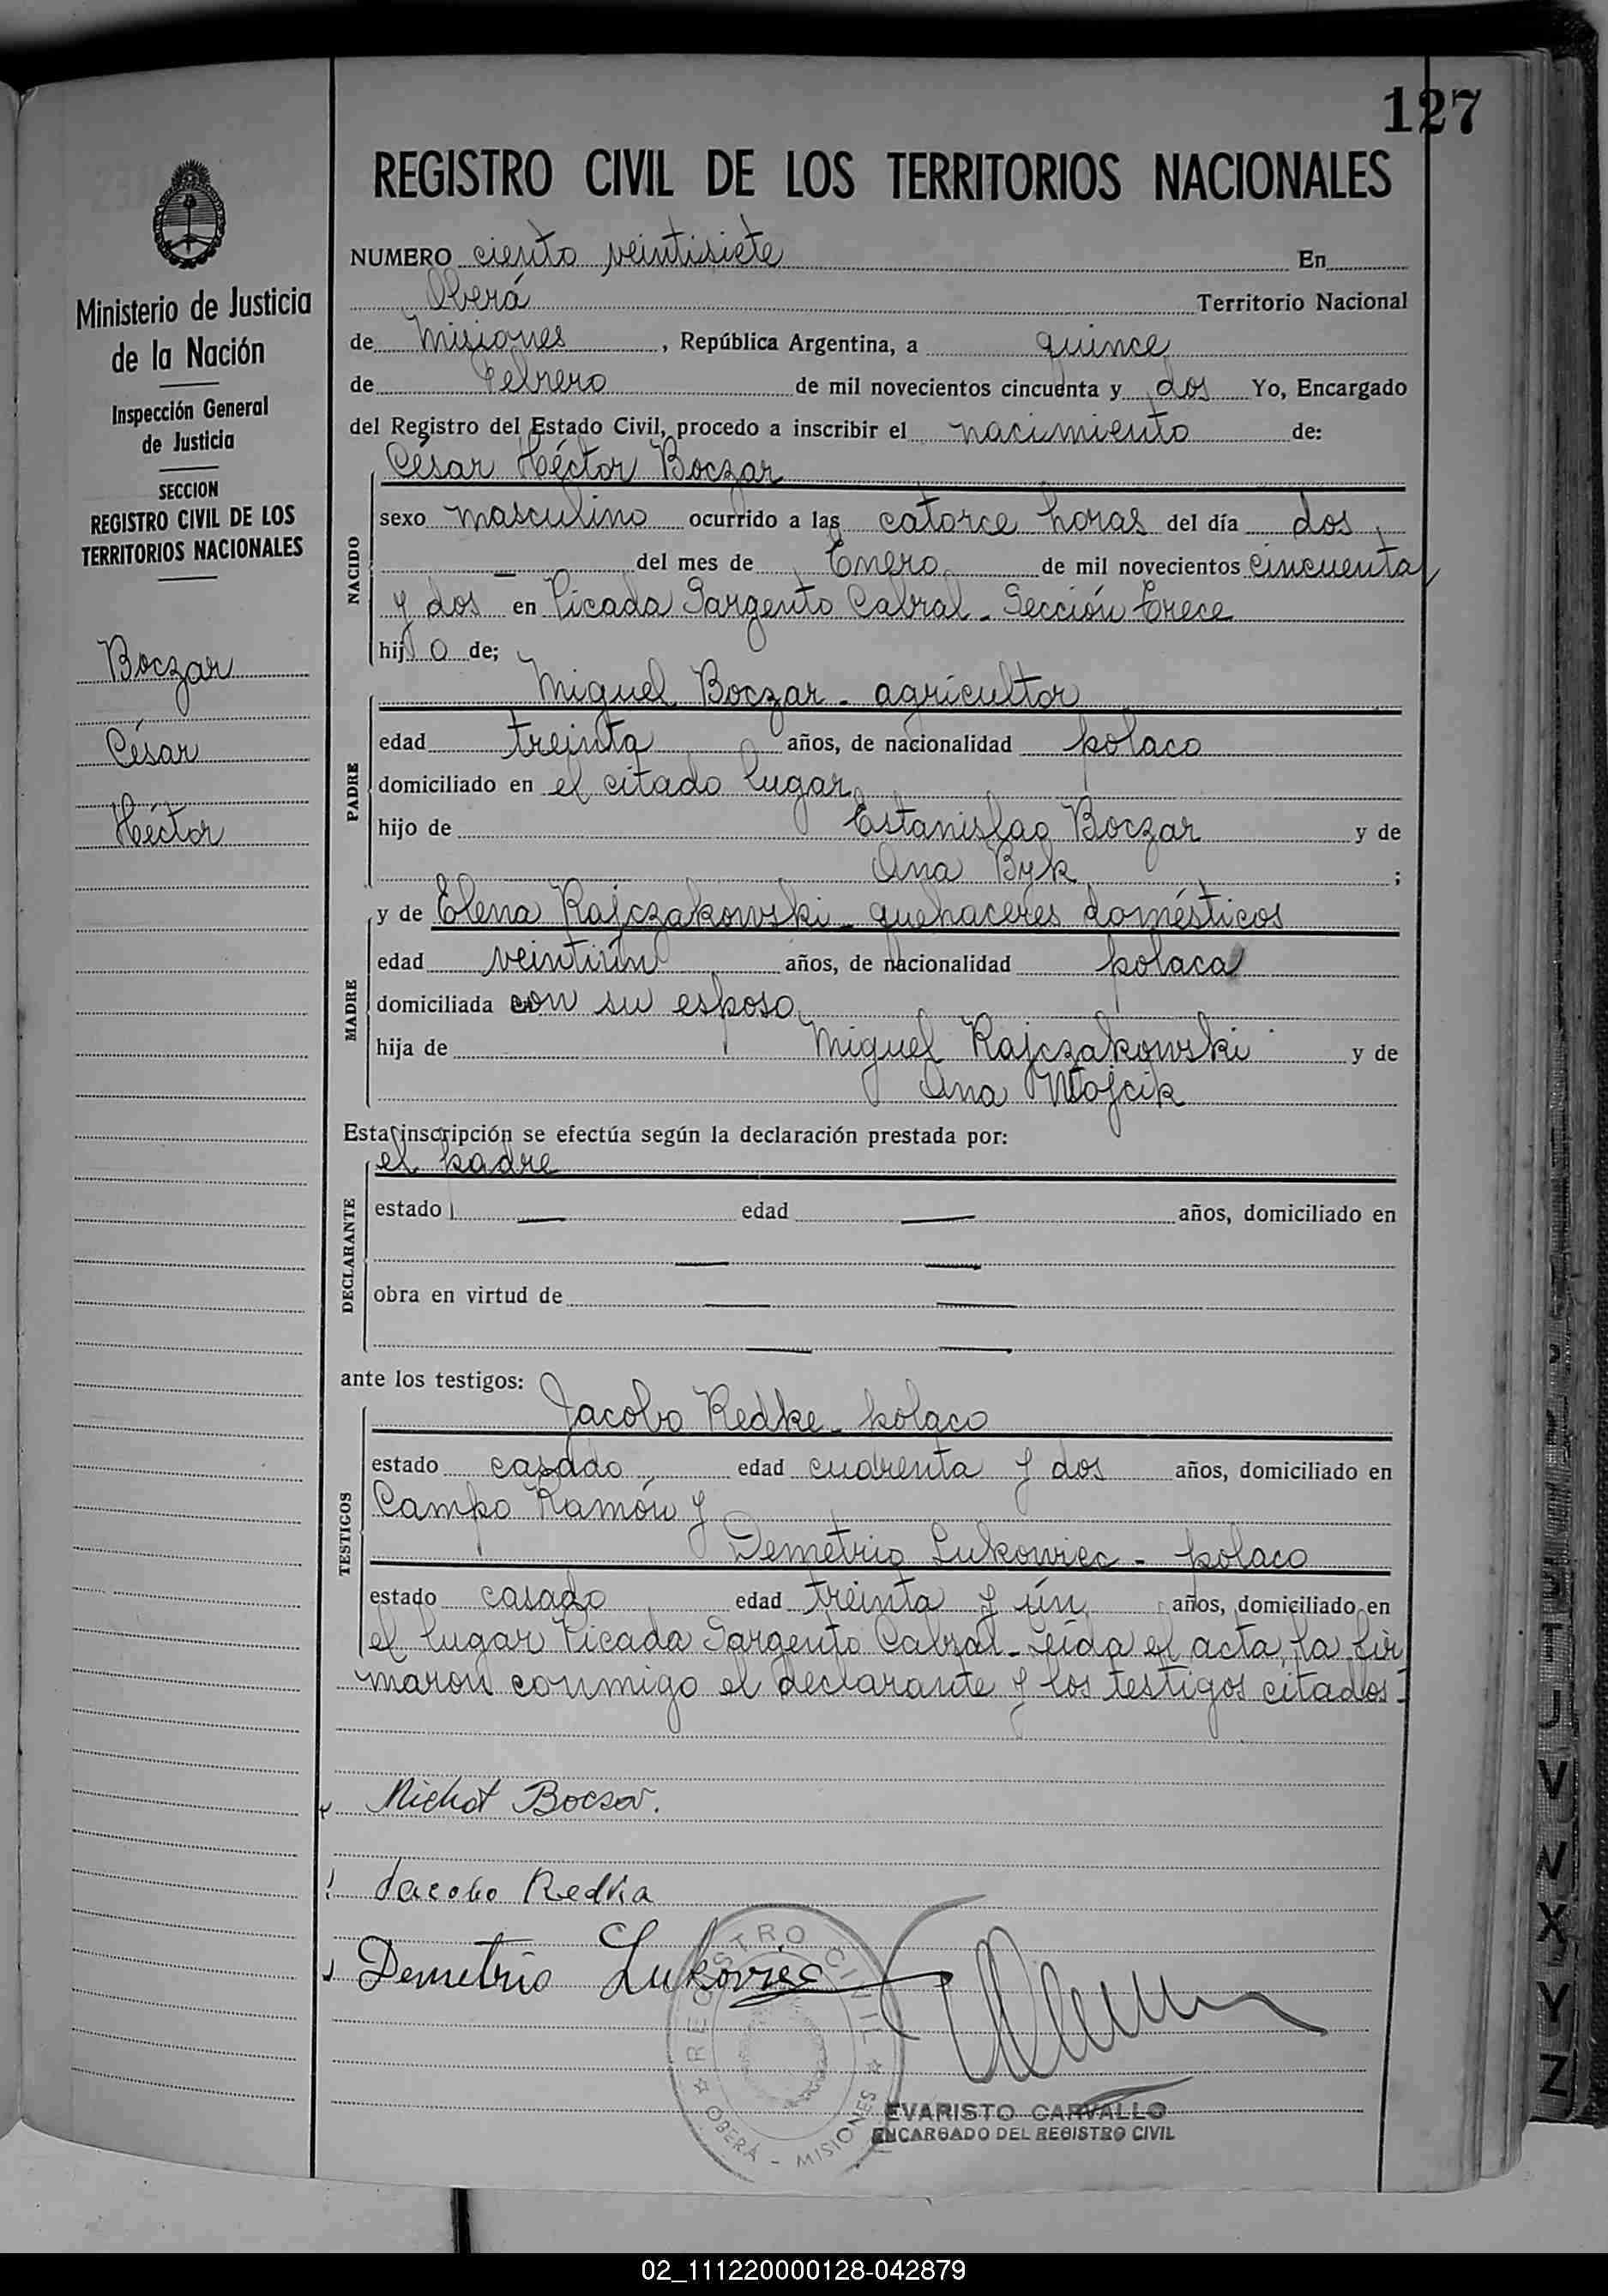 127
REGISTRO CIVIL DE LOS TERRITORIOS NACIONALES
Ministerio de Justicia
de la Nación
Inspección General
de Justicia
SECCION
REGISTRO CIVIL DE LOS
TERRITORIOS NACIONALES
Boczar
César
Héctor
NUMERO ciento veintisiete En
Oberá Territorio Nacional
de Misiones, República Argentina, a quince
de Febrero de mil novecientos cincuenta y dos Yo, Encargado
del Registro del Estado Civil, procedo a inscribir el nacimiento de:
NACIDO
César Héctor Boczar
sexo masculino ocurrido a las catorce horas del día dos
— del mes de Enero de mil novecientos cincuenta
y dos en Picada Sargento Cabral - Sección Trece
hijo de;
PADRE
Miguel Boczar - agricultor
edad treinta años, de nacionalidad polaco
domiciliado en el citado lugar
hijo de Estanislao Boczar y de
Ana Byk ;
MADRE
y de Elena Rajczakowski - quehaceres domésticos
edad veintiún años, de nacionalidad polaca
domiciliada con su esposo
hija de Miguel Rajczakowski y de
Ana Wojcik
Esta inscripción se efectúa según la declaración prestada por:
DECLARANTE
el padre
estado — edad — años, domiciliado en
— —
obra en virtud de — —
— —
ante los testigos:
TESTIGOS
Jacobo Redke - polaco
estado casado edad cuarenta y dos años, domiciliado en
Campo Ramón y
Demetrio Lukowiec - polaco
estado casado edad treinta y ún años, domiciliado en
el lugar Picada Sargento Cabral - Leída el acta, la fir
maron conmigo el declarante y los testigos citados.-
Michał Boczar.
Jacobo Redka
Demetrio Lukowiec
REGISTRO CIVIL
OBERÁ - MISIONES
EVARISTO CARVALLO
ENCARGADO DEL REGISTRO CIVIL
J
V
W
X
Y
Z
02_111220000128-042879